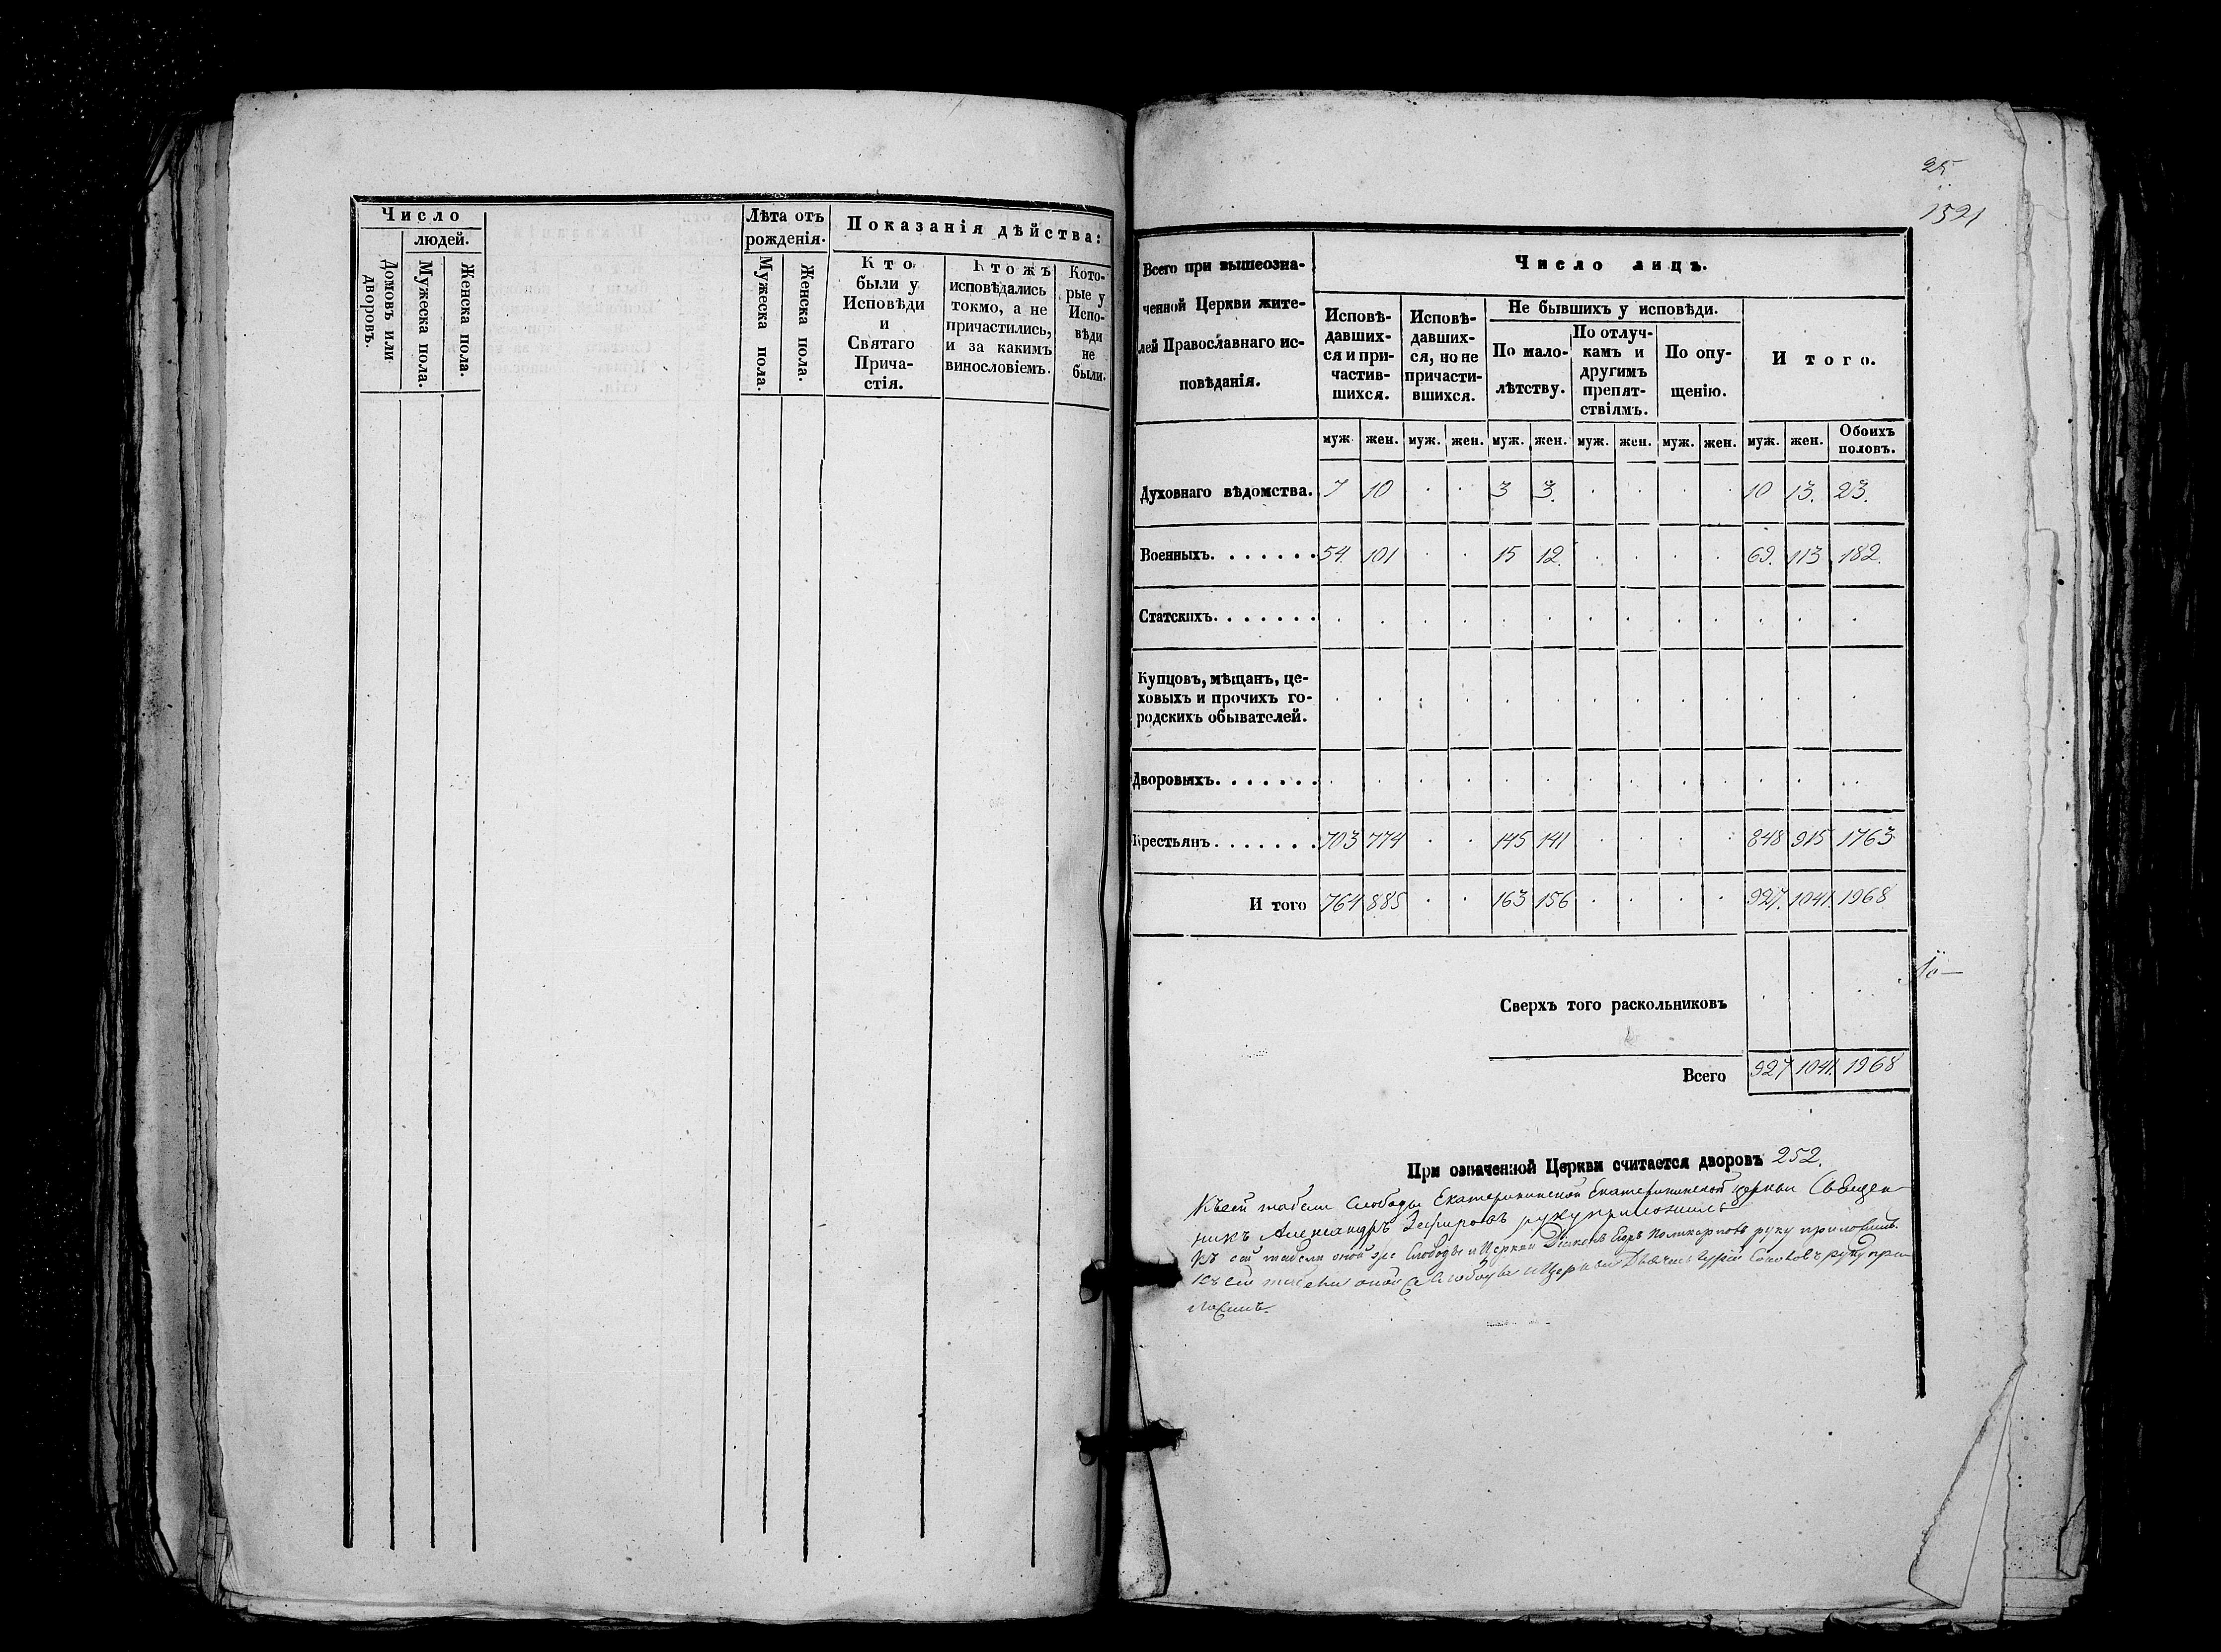 Число
людей.
Домовъ или дворовъ.
Мужеска пола.
Женска пола.
Лѣта отъ
рожденія.
Мужеска пола.
Женска пола.
Показанія дѣйства:
Кто
были у
Исповѣди
и
Святаго
Прича-
стія.
Ктожъ
исповѣдались
токмо, а не
причастились,
и за какимъ
винословіемъ.
Кото-
рые у
Испо-
вѣди
не
были.
25
1521
Всего при вышеозна-
ченной Церкви жите-
лей Православнаго ис-
повѣданія.
Число лицъ.
Исповѣ-
давших-
ся и при-
частив-
шихся.
Исповѣ-
давших-
ся, но не
причасти-
вшихся.
Не бывшихъ у исповѣди.
По мало-
лѣтству.
По отлуч-
камъ и
другимъ
препят-
ствіямъ.
По опу-
щенію.
Итого.
муж. жен. муж. жен. муж. жен. муж. жен. муж. жен. муж. жен. Обоихъ половъ.
Духовнаго вѣдомства. 7 10 . . 3 3. . . . . 10 13. 23.
Военныхъ. . . . . . . 54. 101 . . 15 12. . . . . 69. 113 182.
Статскихъ. . . . . . . . . . . . . . . . . . . .
Купцовъ, мѣщанъ, це-
ховыхъ и прочихъ го-
родскихъ обывателей. . . . . . . . . . . . . .
Дворовыхъ. . . . . . . . . . . . . . . . . . . .
Крестьянъ . . . . . . . 703 774 . . 145 141 . . . . 848 915 1763
И того 764 885 . . 163 156 . . . . 927. 1041. 1968
Сверхъ того раскольниковъ . . .
Всего 927 1041. 1968
При означенной Церкви считается дворовъ 252.
Къ сей табели Слободы Екатерининской Екатерининской церкви Священ-
никъ Александръ Зефировъ руку приложилъ
Къ сей табели оной же Слободы и Церкви Діаконъ Поликарповъ руку приложилъ.
Къ сей табели оной Слободы и Церкви Дьячекъ руку при-
ложилъ.